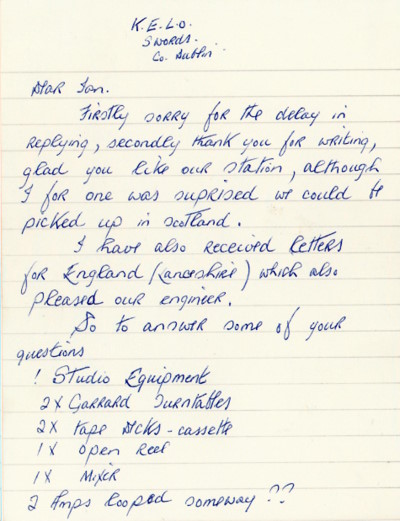 K.E.L.O.
Swords.
Co. Dublin.
Dear Ian.
Firstly sorry for the delay in
replying, secondly thank you for writing,
glad you like our station, although
I for one was suprised we could be
picked up in Scotland.
I have also received letters
for England (Lanceshire) which also
pleased our engineer.
So to answer some of your
questions
! Studio Equipment
2X Garrard Turntables
2X tape decks - cassette
1X open Reel
1X Mixer
2 Amps looped someway ??